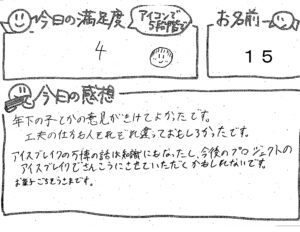 今日の満足度
アイコンで
5段階で
お名前
4
15
今日の感想
年下の子とかの意見がきけてよかったです。
工夫の仕方も人それぞれ違っておもしろかったです。
アイスブレイクの万博の話は知識にもなったし、今後のプロジェクトの
アイスブレイクでさんこうにさせていただくかもしれないです。
お菓子ごちそうさまです。